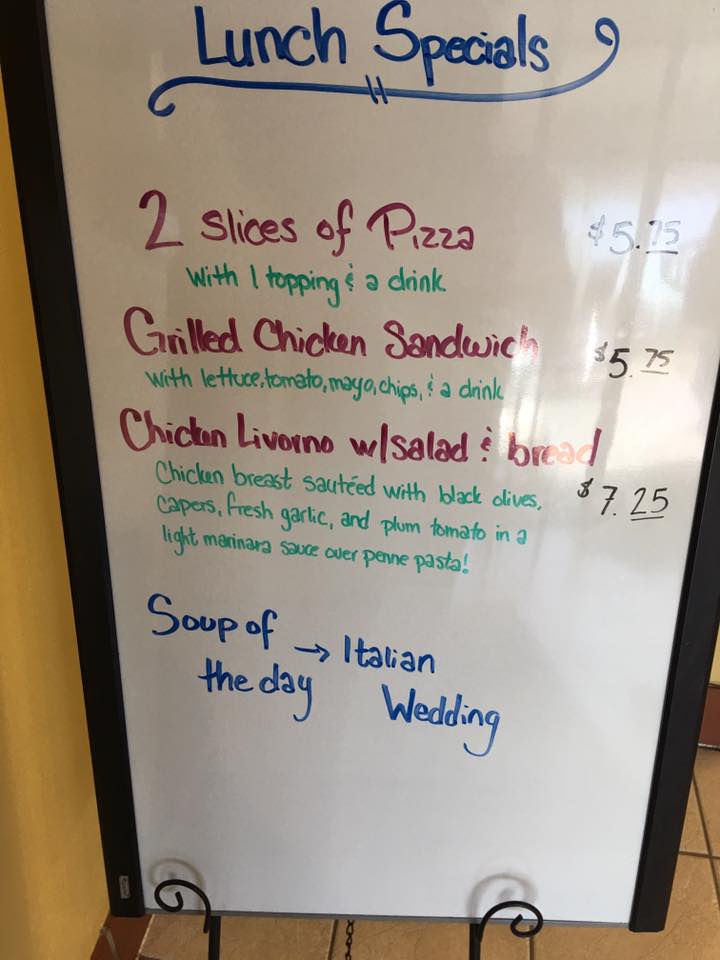 Lunch Specials
2 slices of Pizza $5.75
with 1 topping & a drink
Grilled Chicken Sandwich $5.75
with lettuce, tomato, mayo, chips, & a drink
Chicken Livorno w/salad & bread
Chicken breast sautéed with black olives, $7.25
capers, fresh garlic, and plum tomato in a
light marinara sauce over penne pasta!
Soup of
the day → Italian
Wedding